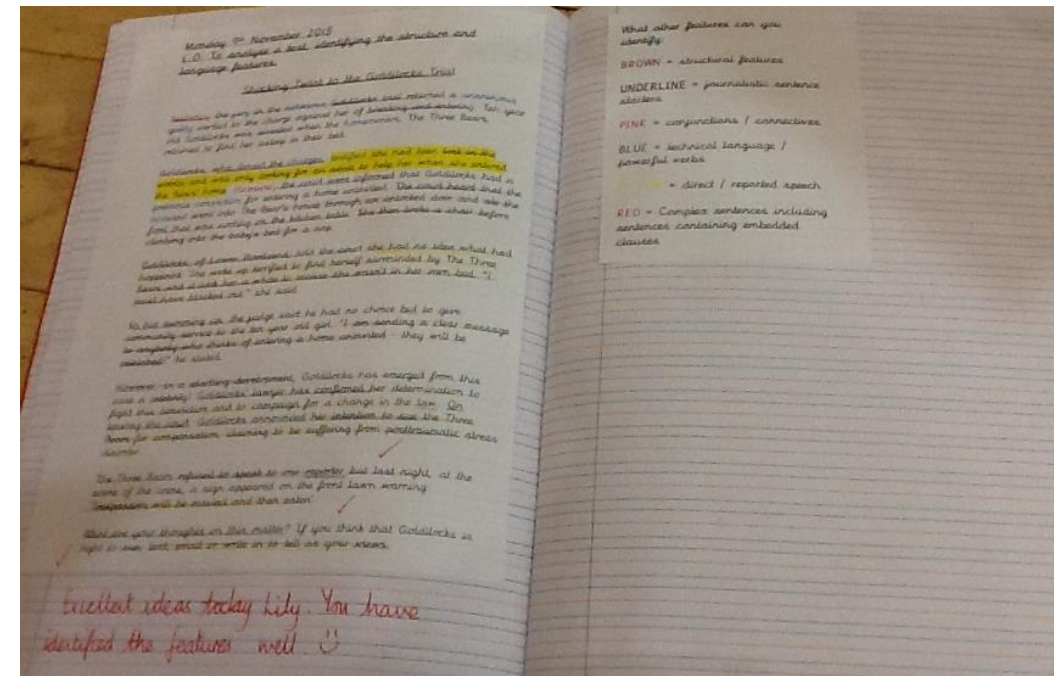 Monday 9th November 2015
L.O. To analyse a text, identifying the structure and
language features.
Shocking Twist to the Goldilocks Trial
the jury in the notorious Goldilocks trial returned a unanimous
guilty verdict to the charge against her of breaking and entering. Ten year
old Goldilocks was arrested when the homeowners, The Three Bears,
returned to find her asleep in their bed.
Goldilocks, who denied the charges, she had been lost in the
woods and was only looking for an adult to help her when she entered
the Bears' home. the court were informed that Goldilocks had a
previous conviction for entering a home uninvited. The court heard that the
accused went into The Bears's house through an unlocked door and ate the
food that was cooling on the kitchen table. She then broke a chair before
climbing into the baby's bed for a nap.
Goldilocks, of told the court she had no idea what had
happened. She woke up terrified to find herself surrounded by The Three
Bears and it took her a while to realise she wasn't in her own bed. "I
must have blacked out," she said.
In his summing up, the judge said he had no choice but to give
community service to the ten year old girl. "I am sending a clear message
to anybody who thinks of entering a home uninvited - they will be
punished!" he stated.
However, in a startling development, Goldilocks has emerged from this
case a celebrity! Goldilocks' lawyer has confirmed her determination to
fight this conviction and to campaign for a change in the law. On
leaving the court, Goldilocks announced her intention to sue the Three
Bears for compensation, claiming to be suffering from posttraumatic stress
disorder.
The Three Bears refused to speak to our reporter but last night, at the
scene of the crime, a sign appeared on the front lawn warning
Trespassers will be mauled and then eaten!
What are your thoughts on this matter? If you think that Goldilocks is
right to sue, text, email or write in to tell us your views.
Excellent ideas today Lily. You have
identified the features well
What other features can you
identify:
BROWN = structural features
UNDERLINE = journalistic sentence
starters
PINK = conjunctions / connectives
BLUE = technical language /
powerful verbs
= direct / reported speech
RED = Complex sentences including
sentences containing embedded
clauses